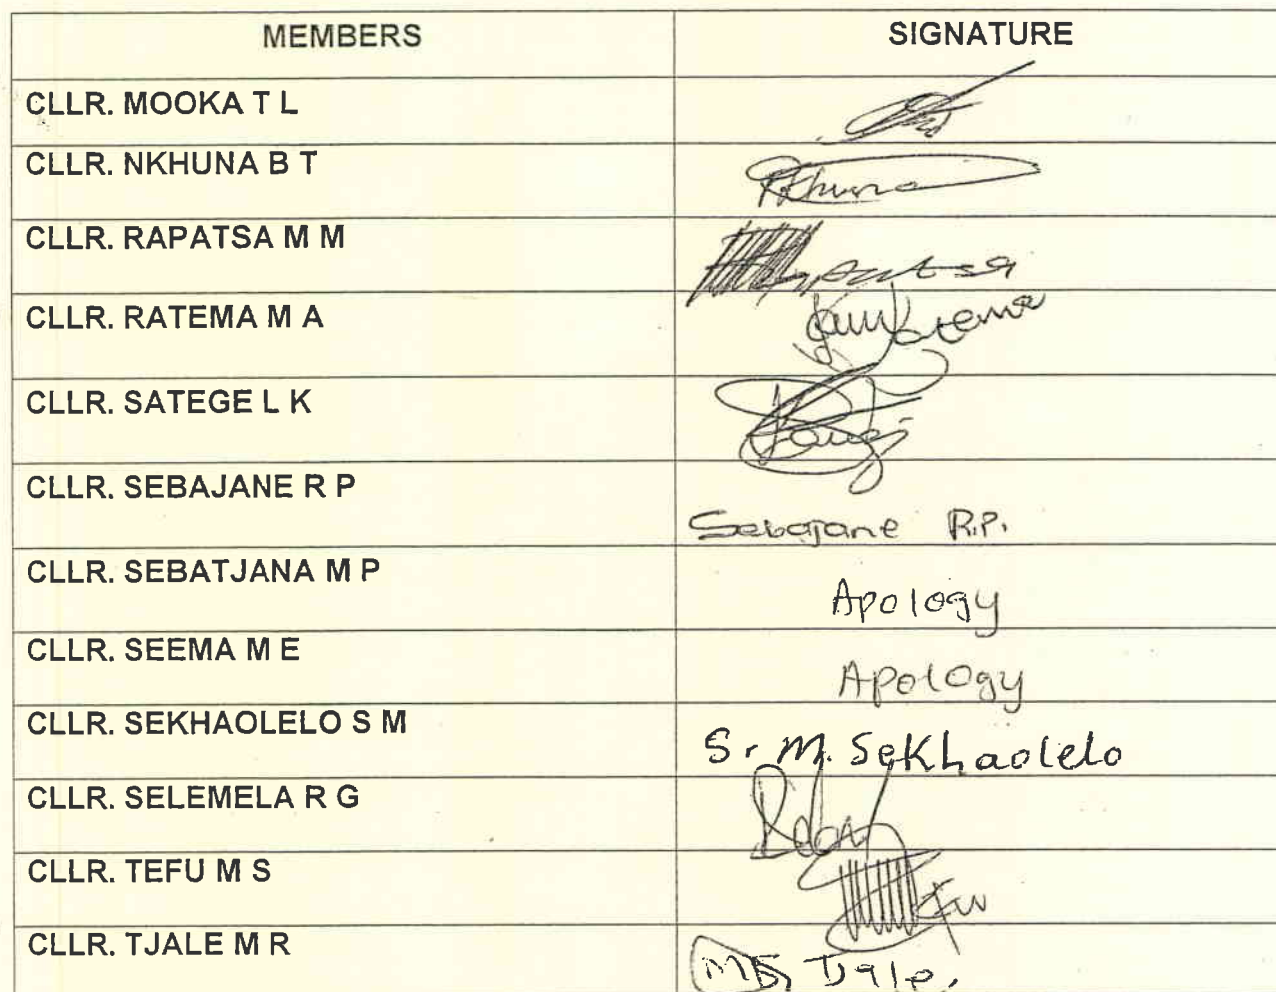 MEMBERS SIGNATURE
CLLR. MOOKA T L
CLLR. NKHUNA B T
CLLR. RAPATSA M M
CLLR. RATEMA M A
CLLR. SATEGE L K
CLLR. SEBAJANE R P Sebajane R.P.
CLLR. SEBATJANA M P Apology
CLLR. SEEMA M E Apology
CLLR. SEKHAOLELO S M S. M. Sekhaolelo
CLLR. SELEMELA R G
CLLR. TEFU M S
CLLR. TJALE M R